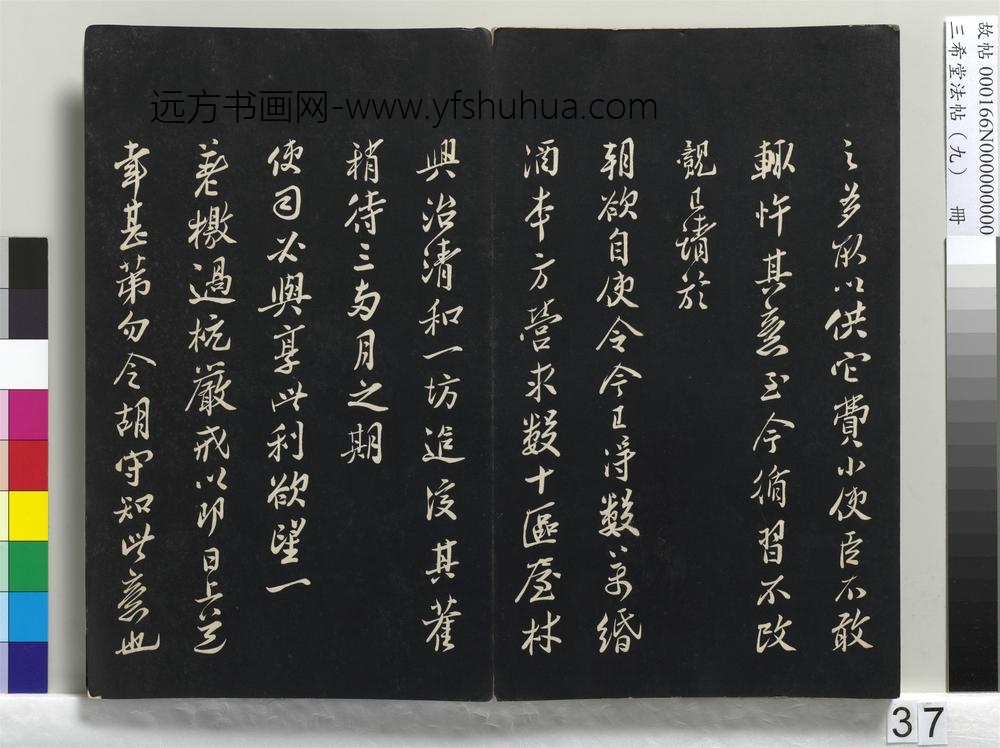 之多取以供它費小使臣不敢
輙忤其意至今循習不改
觀已請於
朝欲自使令今已得數萬緡
酒本方營求數十區屋材
興治清和一坊造沒其舊
稍待三両月之期
使司必與享此利欲望一
差檄過杭嚴戒以即日上道
幸甚第勿令胡守知此意也
远方书画网-www.yfshuhua.com
故帖 000166N000000000
三希堂法帖（九） 冊
37